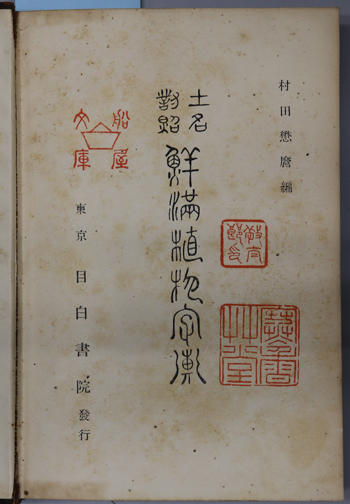 村田懋麿編
土名
對照
鮮滿植物字彙
東京 目白書院發行
船屋
文庫